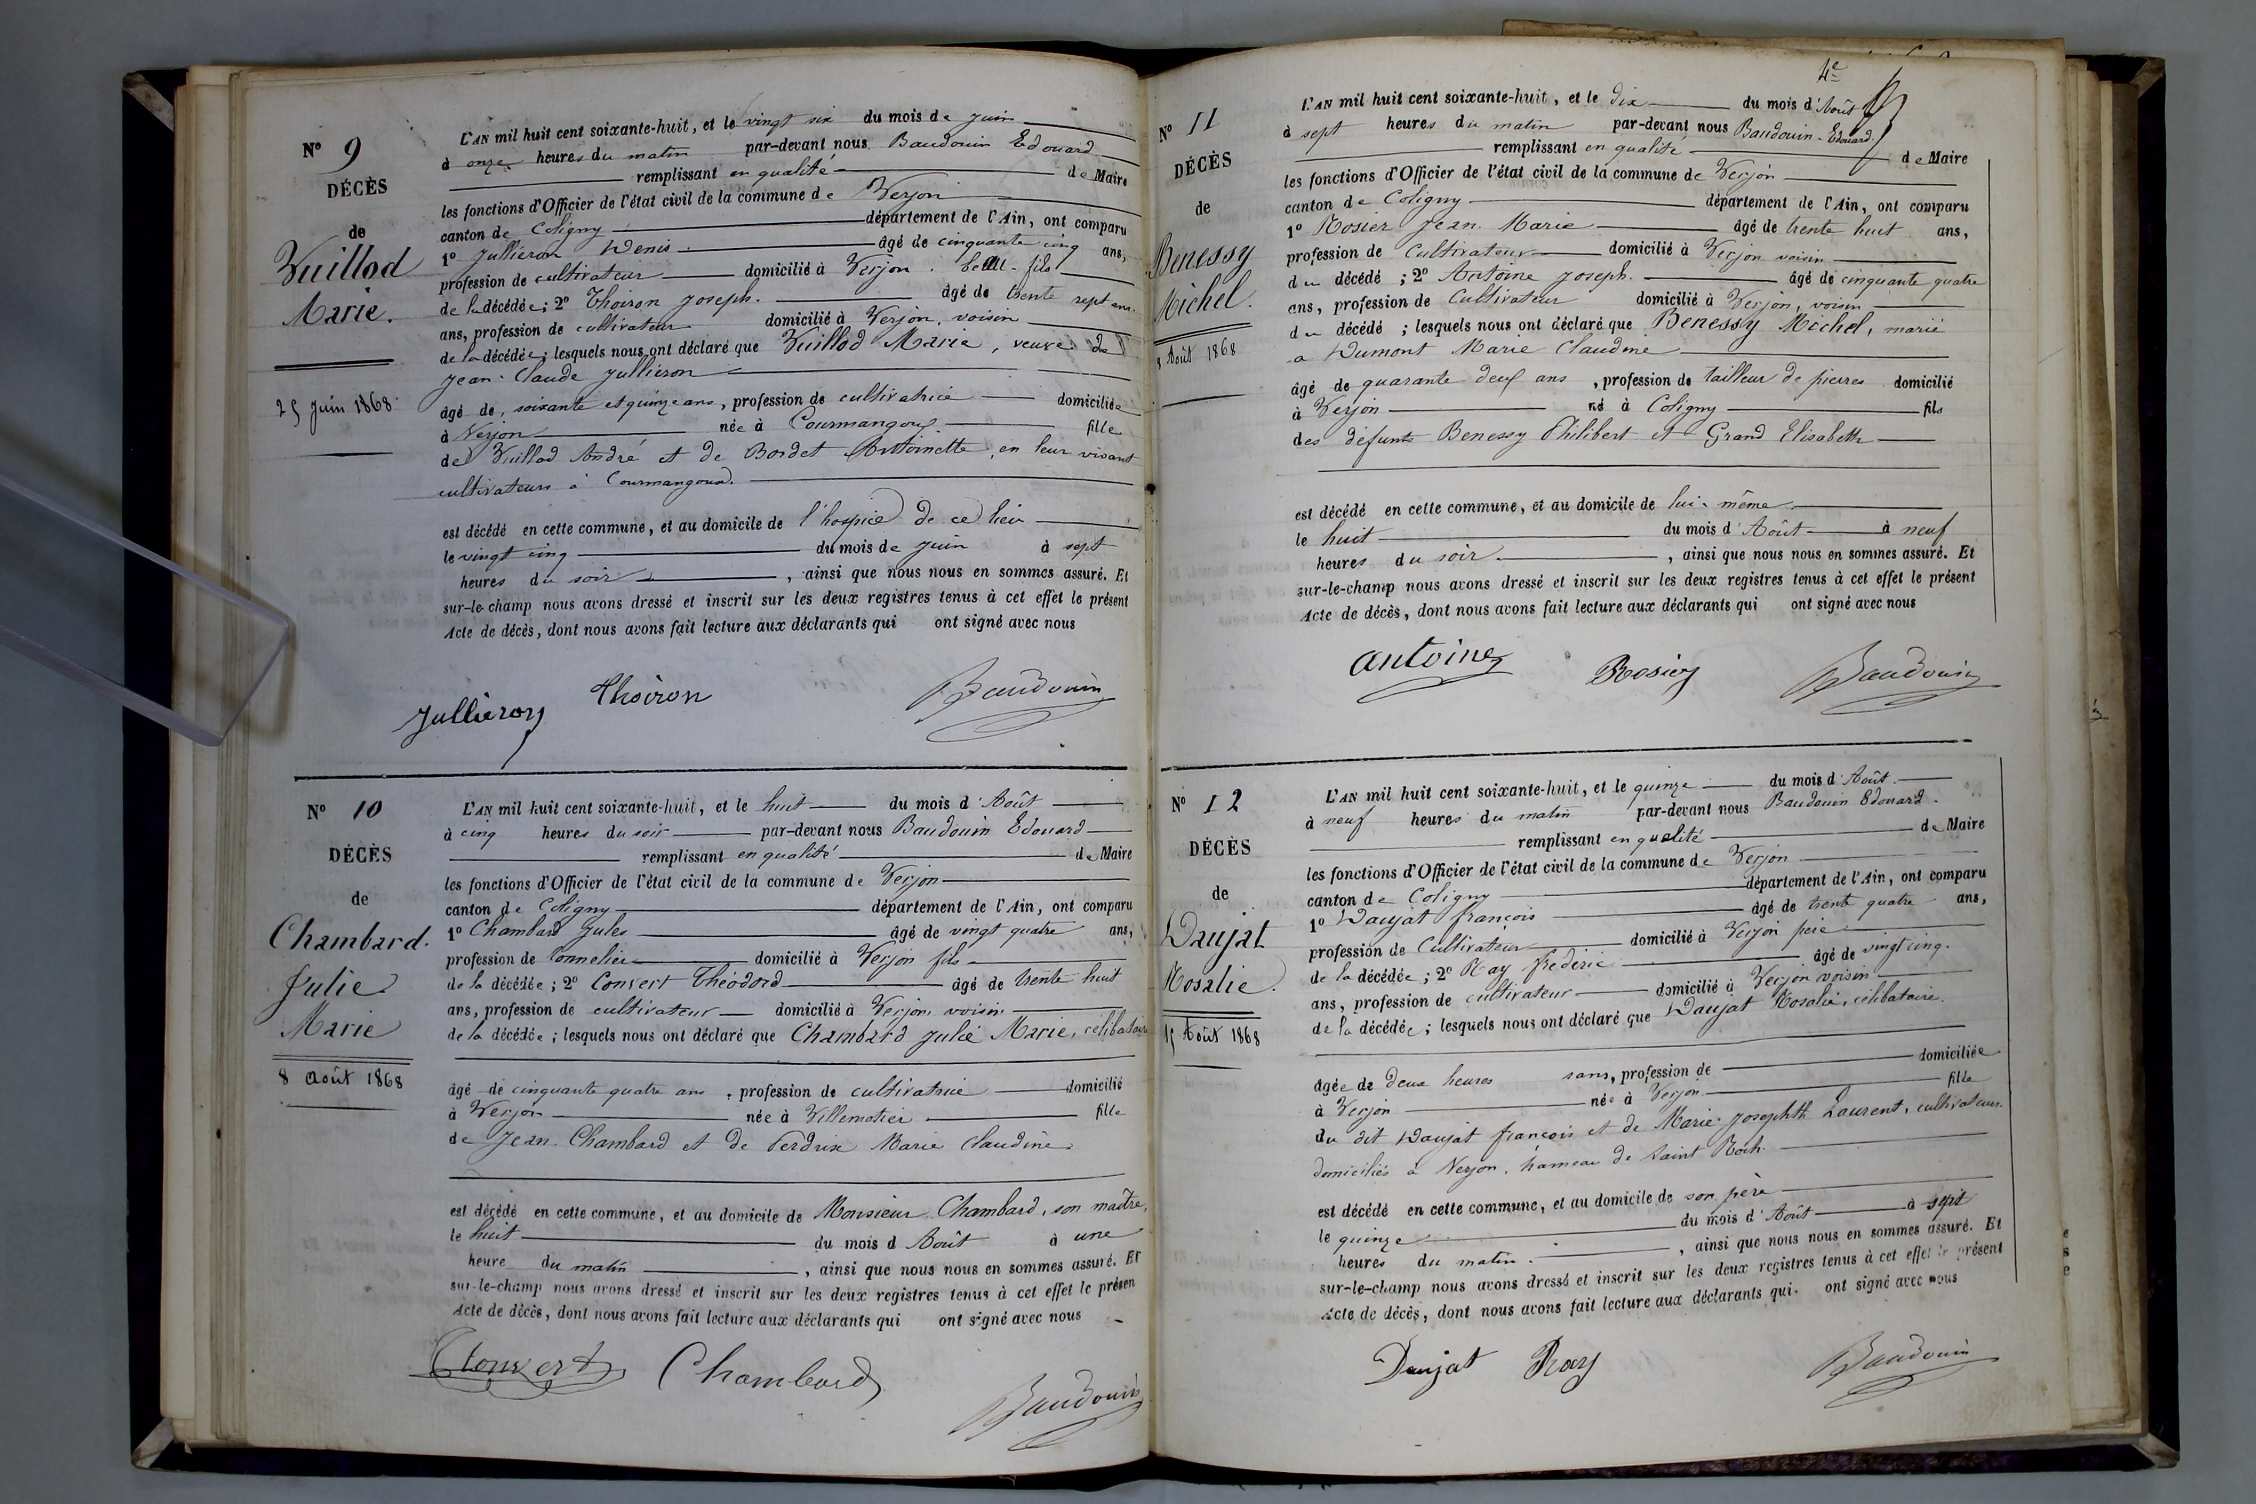 N° 9
DÉCÈS
de
Vuillod
Marie.
25 Juin 1868
L'AN mil huit cent soixante-huit, et le vingt six du mois de Juin
à onze heures du matin par-devant nous Baudouin Edouard
remplissant en qualité de Maire
les fonctions d'Officier de l'état civil de la commune de Verjon
canton de Coligny département de l'Ain, ont comparu
1° Jullieron Denis âgé de cinquante cinq ans,
profession de cultivateur domicilié à Verjon. beau-fils
de la décédée; 2° Thoiron Joseph. âgé de trente sept ans.
ans, profession de cultivateur domicilié à Verjon, voisin
de la décédée; lesquels nous ont déclaré que Vuillod Marie, veuve de
Jean-Claude Jullieron
âgé de, soixante et quinze ans, profession de cultivatrice domiciliée
à Verjon née à Courmangoux. fille
de Vuillod André et de Bordet Antoinette, en leur vivant
cultivateurs à Courmangoux.
est décédé en cette commune, et au domicile de l'hospice de ce lieu
le vingt cinq du mois de Juin à sept
heures du soir, ainsi que nous nous en sommes assuré. Et
sur-le-champ nous avons dressé et inscrit sur les deux registres tenus à cet effet le présent
Acte de décès, dont nous avons fait lecture aux déclarants qui ont signé avec nous
Jullieron Thoiron Baudouin
N° 10
DÉCÈS
de
Chambard.
Julie
Marie
8 Août 1868
L'AN mil huit cent soixante-huit, et le huit du mois d'Août
à cinq heures du soir par-devant nous Baudouin Edouard
remplissant en qualité de Maire
les fonctions d'Officier de l'état civil de la commune de Verjon
canton de Coligny département de l'Ain, ont comparu
1° Chambard Jules âgé de vingt quatre ans,
profession de tonnelier domicilié à Verjon fils
de la décédée; 2° Convert Théodord âgé de trente huit
ans, profession de cultivateur domicilié à Verjon, voisin
de la décédée; lesquels nous ont déclaré que Chambard Julie Marie, célibataire
âgé de cinquante quatre ans, profession de cultivatrice domicilié
à Verjon née à Villemotier fille
de Jean Chambard et de Perdrix Marie Claudine
est décédé en cette commune, et au domicile de Monsieur Chambard, son maître,
le huit du mois d Août à une
heure du matin, ainsi que nous nous en sommes assuré. Et
sur-le-champ nous avons dressé et inscrit sur les deux registres tenus à cet effet le présen
Acte de décès, dont nous avons fait lecture aux déclarants qui ont signé avec nous
Convert Chambard Baudouin
4e
N° 11
DÉCÈS
de
Benessy
Michel.
8 Août 1868
L'AN mil huit cent soixante-huit, et le dix du mois d'Août
à sept heures du matin par-devant nous Baudouin Edouard
remplissant en qualité de Maire
les fonctions d'Officier de l'état civil de la commune de Verjon
canton de Coligny département de l'Ain, ont comparu
1° Rosier Jean Marie âgé de trente huit ans,
profession de Cultivateur domicilié à Verjon voisin
du décédé; 2° Antoine Joseph. âgé de cinquante quatre
ans, profession de Cultivateur domicilié à Verjon, voisin
du décédé; lesquels nous ont déclaré que Benessy Michel, marié
a Dumont Marie Claudine
âgé de quarante deux ans, profession de tailleur de pierres domicilié
à Verjon né à Coligny fils
des défunts Benessy Philibert et Grand Elisabeth
est décédé en cette commune, et au domicile de lui-même
le huit du mois d'Août à neuf
heures du soir., ainsi que nous nous en sommes assuré. Et
sur-le-champ nous avons dressé et inscrit sur les deux registres tenus à cet effet le présent
Acte de décès, dont nous avons fait lecture aux déclarants qui ont signé avec nous
antoine Rosier Baudouin
N° 12
DÉCÈS
de
Daujat
Rosalie.
15 Août 1868
L'AN mil huit cent soixante-huit, et le quinze du mois d'Août.
à neuf heures du matin par-devant nous Baudouin Edouard.
remplissant en qualité de Maire
les fonctions d'Officier de l'état civil de la commune de Verjon
canton de Coligny département de l'Ain, ont comparu
1° Daujat françois âgé de trente quatre ans,
profession de Cultivateur domicilié à Verjon père
de la décédée; 2° Ray frederic âgé de vingt cinq.
ans, profession de cultivateur domicilié à Verjon voisin
de la décédée; lesquels nous ont déclaré que Daujat Rosalie, célibataire.
âgée de deux heures sans, profession de domiciliée
à Verjon née à Verjon fille
du dit Daujat françois et de Marie Josephth Laurent, cultivateurs.
domiciliés à Verjon, hameau de Saint Roch.
est décédé en cette commune, et au domicile de son père
le quinze du mois d'Août à sept
heures du matin., ainsi que nous nous en sommes assuré. Et
sur-le-champ nous avons dressé et inscrit sur les deux registres tenus à cet effet le présent
Acte de décès, dont nous avons fait lecture aux déclarants qui. ont signé avec nous
Daujat Ray Baudouin